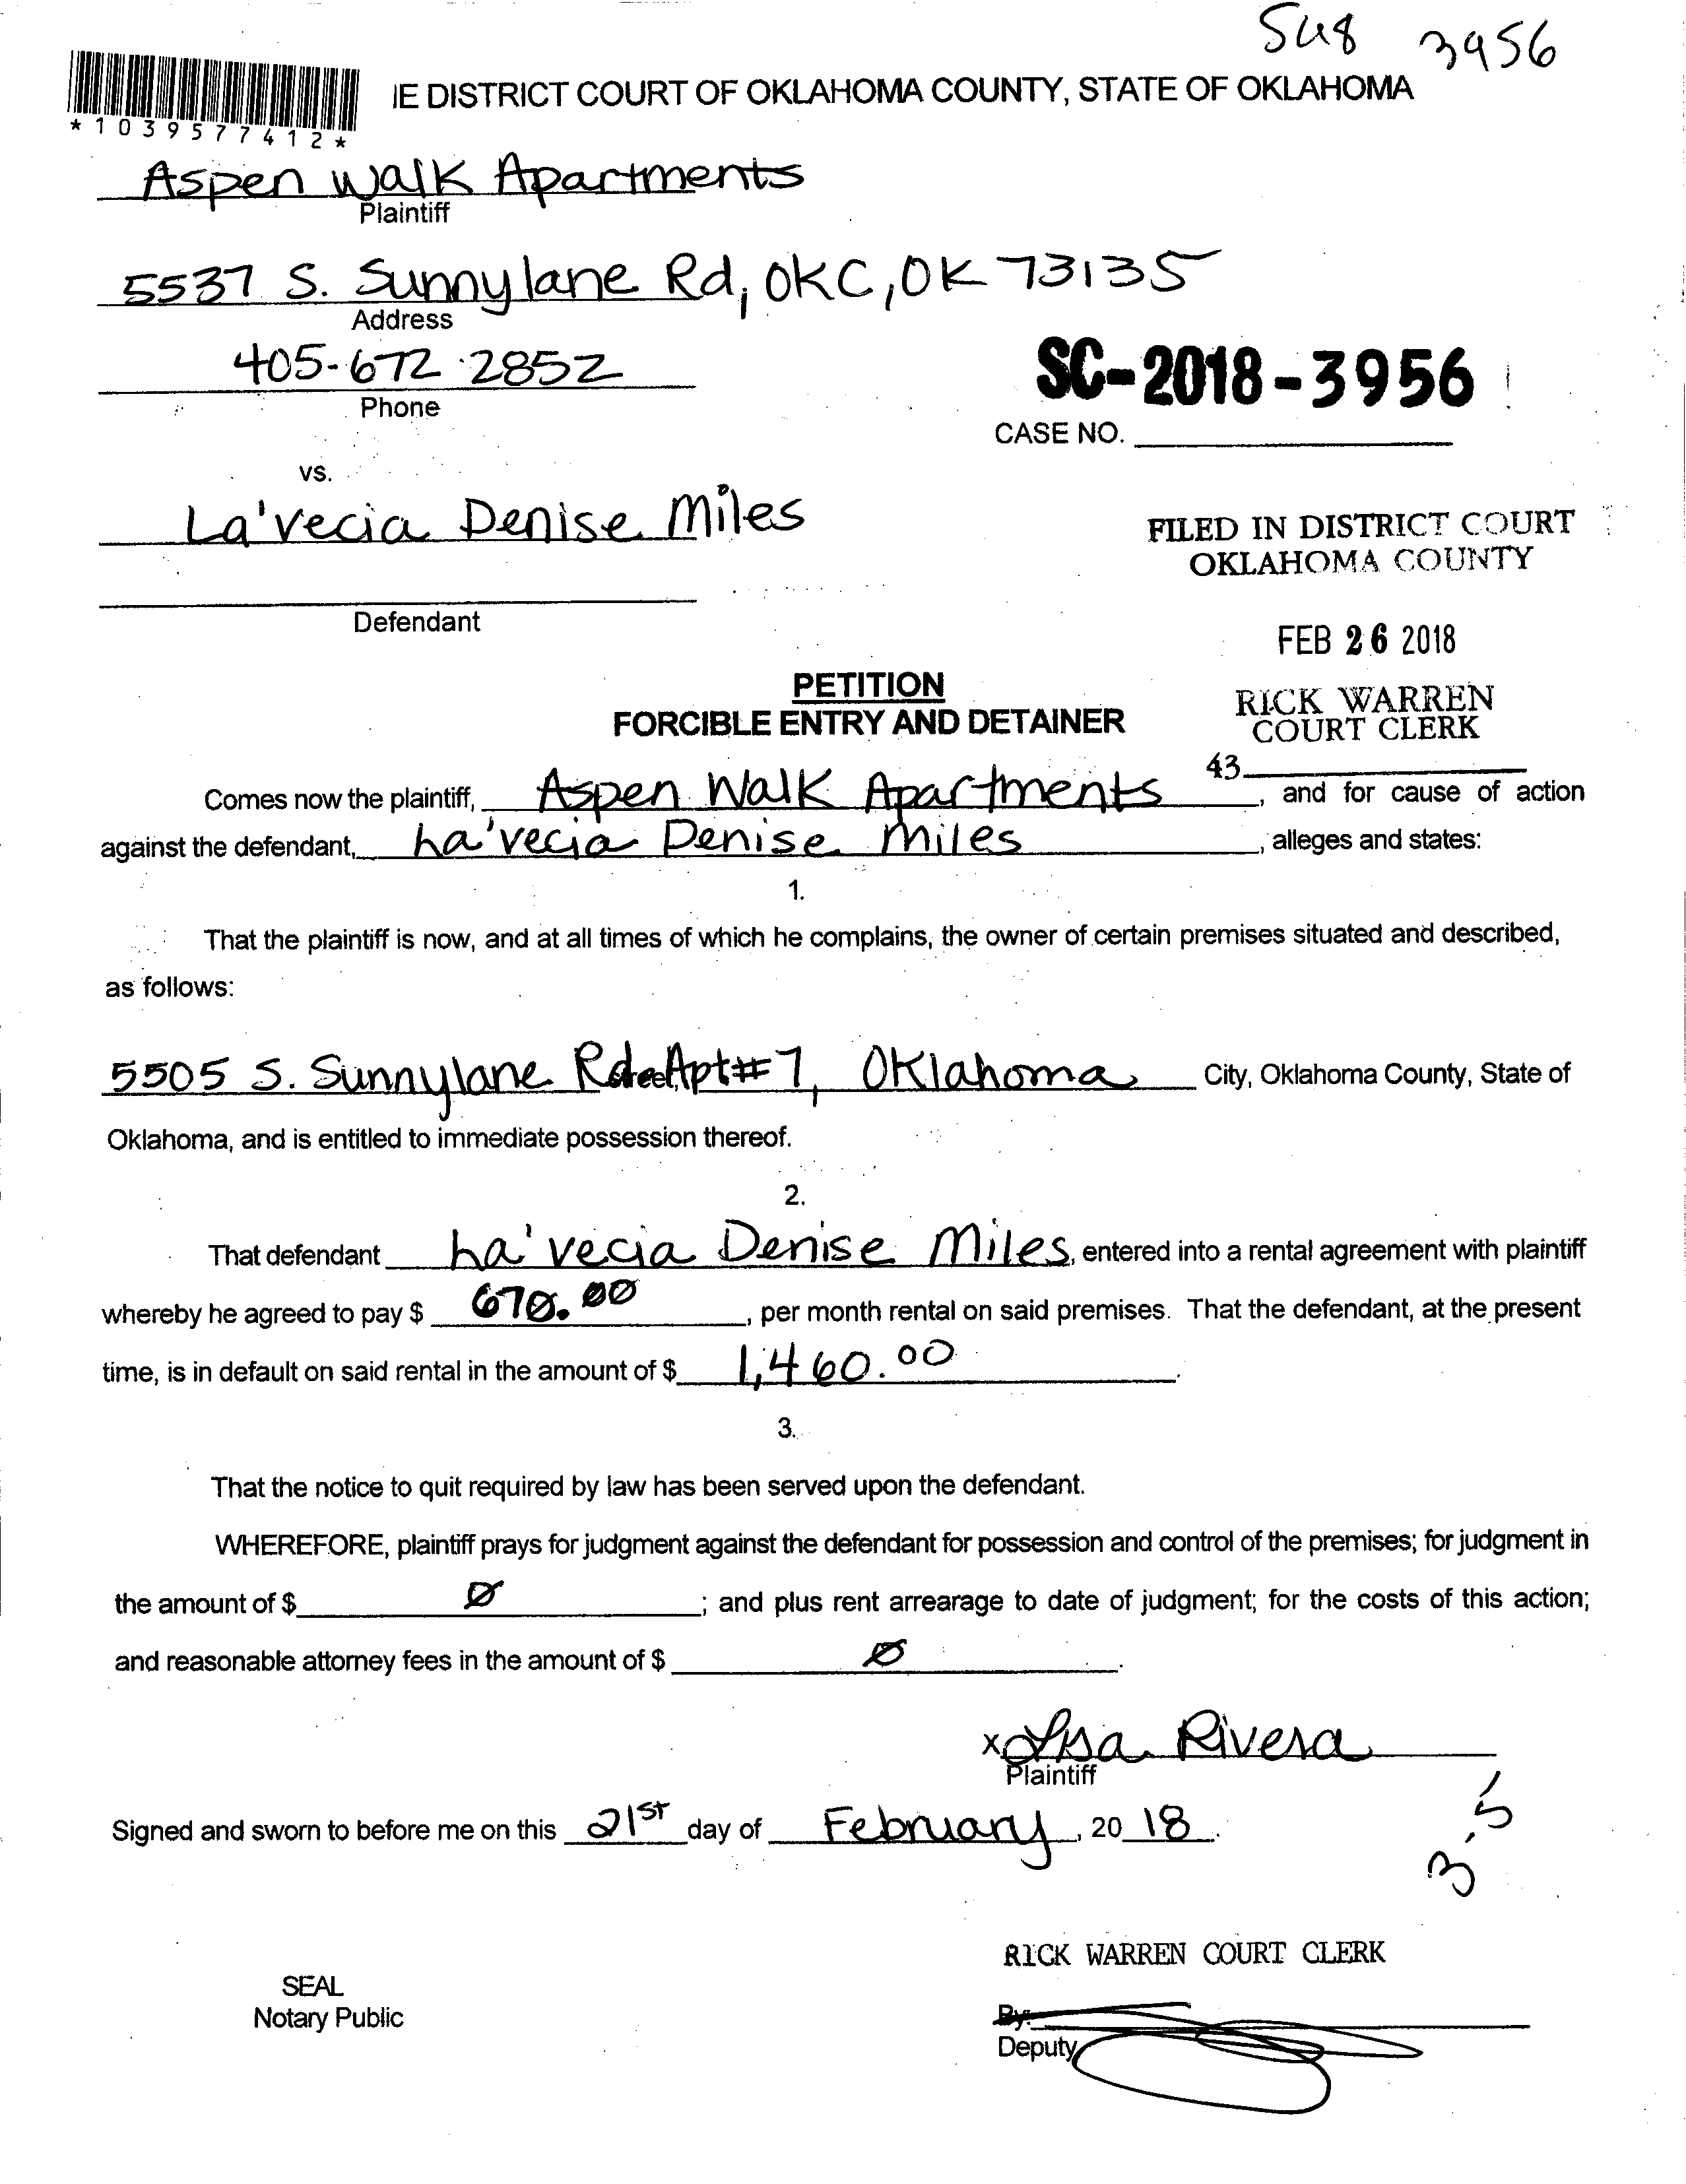 Su8 3956
IE DISTRICT COURT OF OKLAHOMA COUNTY, STATE OF OKLAHOMA
*1039577412*
Aspen Walk Apartments
Plaintiff
5537 S. Sunnylane Rd, OKC, OK 73135
Address
405-672-2852
Phone
SC-2018-3956
CASE NO.
vs.
La'vecia Denise Miles
Defendant
FILED IN DISTRICT COURT
OKLAHOMA COUNTY
FEB 26 2018
RICK WARREN
COURT CLERK
43
PETITION
FORCIBLE ENTRY AND DETAINER
Comes now the plaintiff, Aspen Walk Apartments, and for cause of action
against the defendant, La'vecia Denise Miles, alleges and states:
1.
That the plaintiff is now, and at all times of which he complains, the owner of certain premises situated and described,
as follows:
5505 S. Sunnylane Rd Apt#7, Oklahoma City, Oklahoma County, State of
Oklahoma, and is entitled to immediate possession thereof.
2.
That defendant La'vecia Denise Miles, entered into a rental agreement with plaintiff
whereby he agreed to pay $ 670.00, per month rental on said premises. That the defendant, at the present
time, is in default on said rental in the amount of $ 1,460.00.
3.
That the notice to quit required by law has been served upon the defendant.
WHEREFORE, plaintiff prays for judgment against the defendant for possession and control of the premises; for judgment in
the amount of $ Ø; and plus rent arrearage to date of judgment; for the costs of this action;
and reasonable attorney fees in the amount of $ Ø.
x Lisa Rivera
Plaintiff
Signed and sworn to before me on this 21st day of February, 2018.
RICK WARREN COURT CLERK
SEAL
Notary Public
By:
Deputy